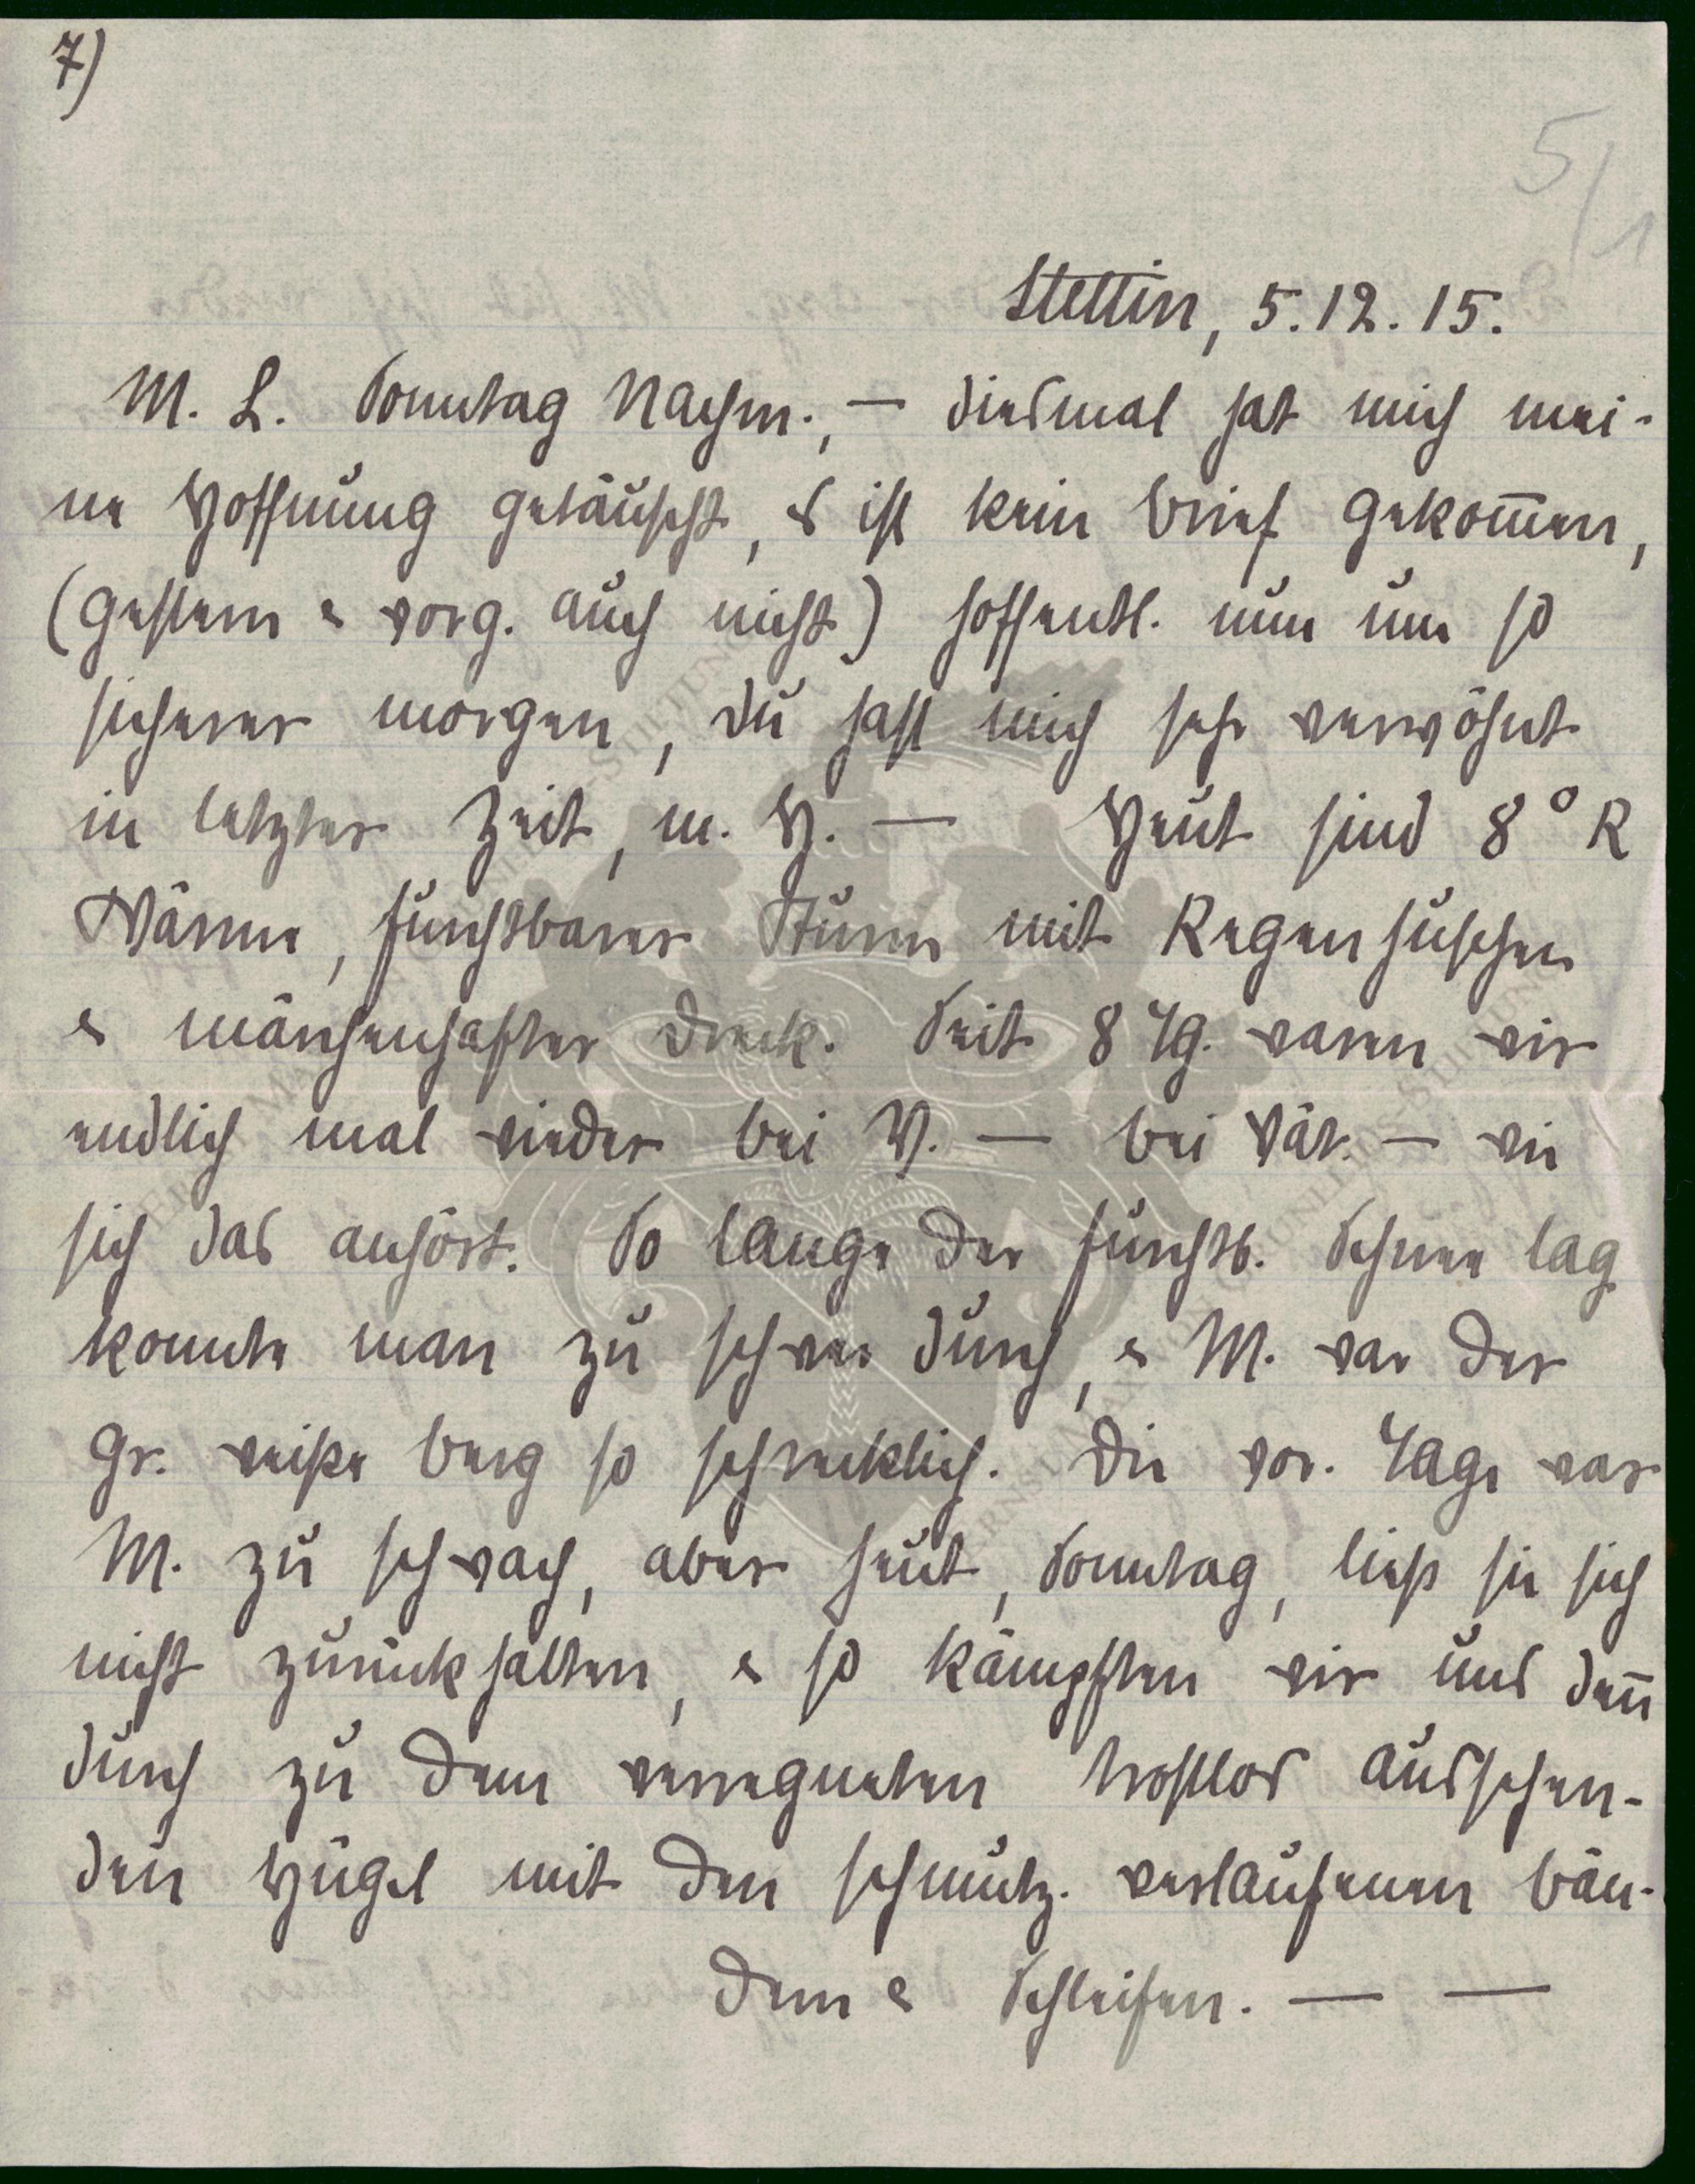 7)
5/1
Stettin, 5.12.15.
M. L. Sonntag Nachm., — diesmal hat mich mei-
ne Hoffnung getäuscht, es ist kein Brief gekom̅en,
(gestern & vorg. auch nicht) hoffentl. nun um so
sicherer morgen, Du hast mich sehr verwöhnt
in letzter Zeit, m. H. — Heut sind 8° R
Wärme, furchtbarer Sturm mit Regenhuschen
& märchenhafter Dreck. Seit 8 Tg. waren wir
endlich mal wieder bei V. — bei Vät. — wie
sich das anhört. So lange der furchtb. Schnee lag
konnte man zu schwer durch, & M. war der
gr. weiße Berg so schrecklich. Die vor. Tage war
M. zu schwach, aber heut, Sonntag, ließ sie sich
nicht zurückhalten, & so kämpften wir uns den̅
durch zu dem verregneten trostlos aussehen-
den Hügel mit den schmutz. verlaufenen Bän-
dern & Schleifen. — —